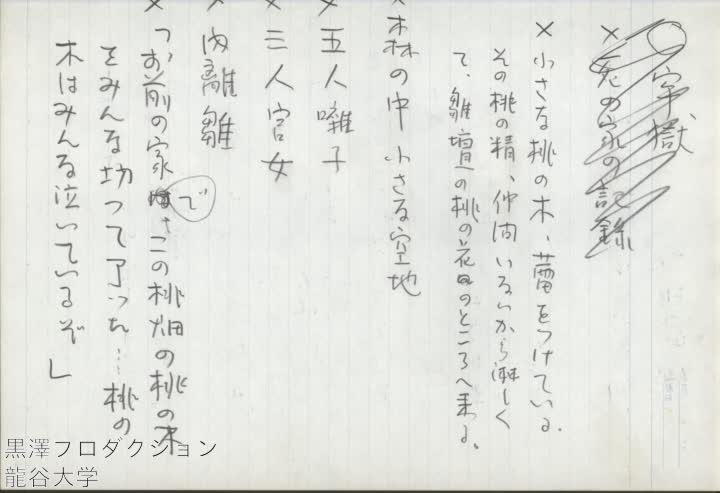 牢獄
×死の家の記録
×小さな桃の木、蕾をつけている。
その桃の精、仲間いないから淋しく
て、雛壇の桃の花のところへ来る。
×森の中 小さな空地
×五人囃子
×三人官女
×内裏雛
×「お前の家で、この桃畑の桃の木
をみんな切って了った…桃の
木はみんな泣いているぞ」
黒澤プロダクション
龍谷大学